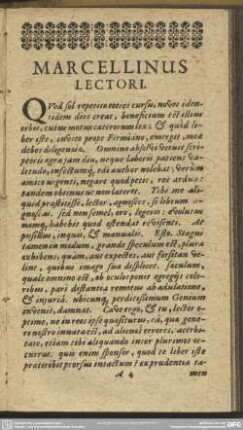 MARCELLINUS
LECTORI.
QUod sol repetito toties cursu, novos iden-
tidem dies creat, beneficium est illius
orbis, cujus motus caeterorum lex: & quòd li-
ber iste, invito prope Firmiano, emerget, mea
debes diligentiae. Omnino absolvi veteris scri-
ptionis agra jam diu, neque laboris patiens va-
letudo, infectumq, edi author nolebat: verum
amico urgenti, negare quod petit, res ardua:
tandem obtinui ne non daret. Tibi me ali-
quid praestitisse, lector, agnosces, si librum
agnoscas. sed non semel, oro, legeris:
habebis quod ostendat
pusillus, inquis, & manualis. Esto. Stagni
tamen in modum, grande speculum est, plura
exhibens, quàm, aut expectes, aut forsitan ve-
lint, quibus imago sua displicet. saeculum,
quale omnino est, ob oculos ponet egregiè cele-
bribus, pari distantia remotus ab adulatione,
& injuriâ. ubicunq, perditissimum Genium
invenit, damnat. Cave ergo, & tu, lector ex-
prime, ne in teipse quasiturus, câ, qua gene-
ri nostro innata est, ad alienos errores, acerbi-
tate, etiam tibi aliquando inter plurimos oc-
curras. quis enim sponsor, quod te liber iste
praeteribit prorsus intactum? ex prudentia ta-
A 4 men